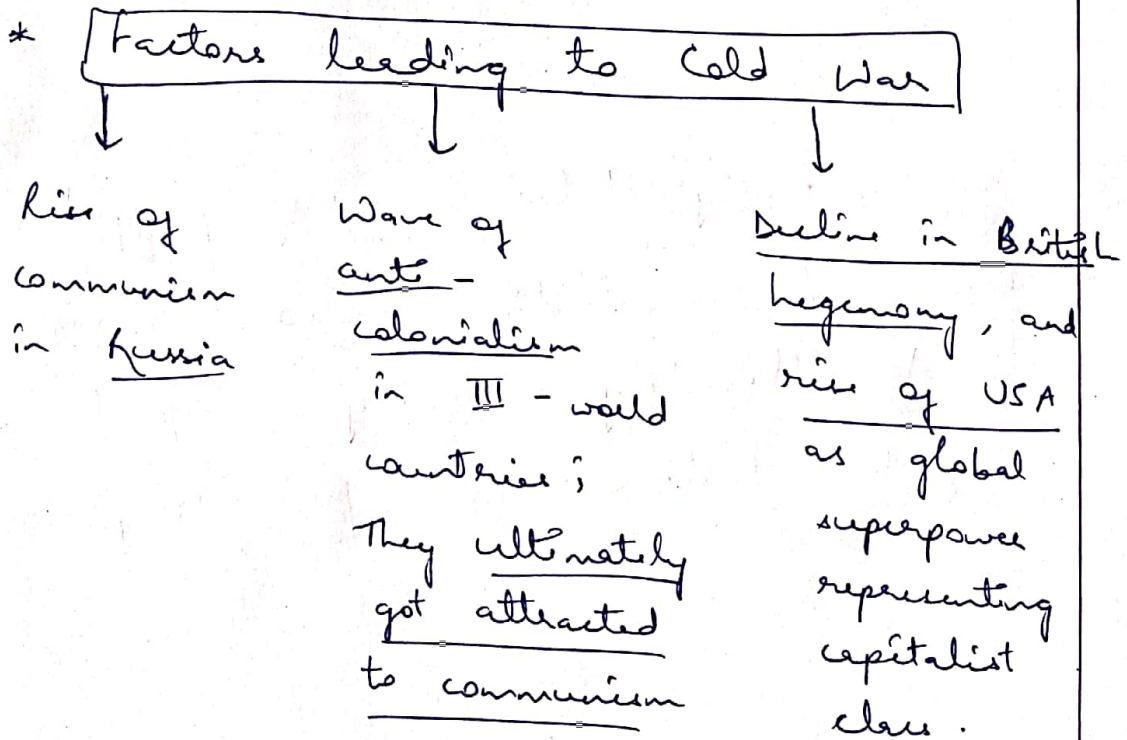 * Factors leading to Cold War
Rise of
communism
in Russia
Wave of
anti-
colonialism
in III - world
countries;
They ultimately
got attracted
to communism
Decline in British
hegemony, and
rise of USA
as global
superpower
representing
capitalist
class.